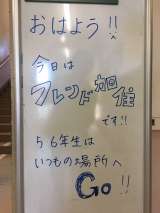 おはよう!!
今日は
フレンド加住
です!!
56年生は
いつもの場所へ
Go!!